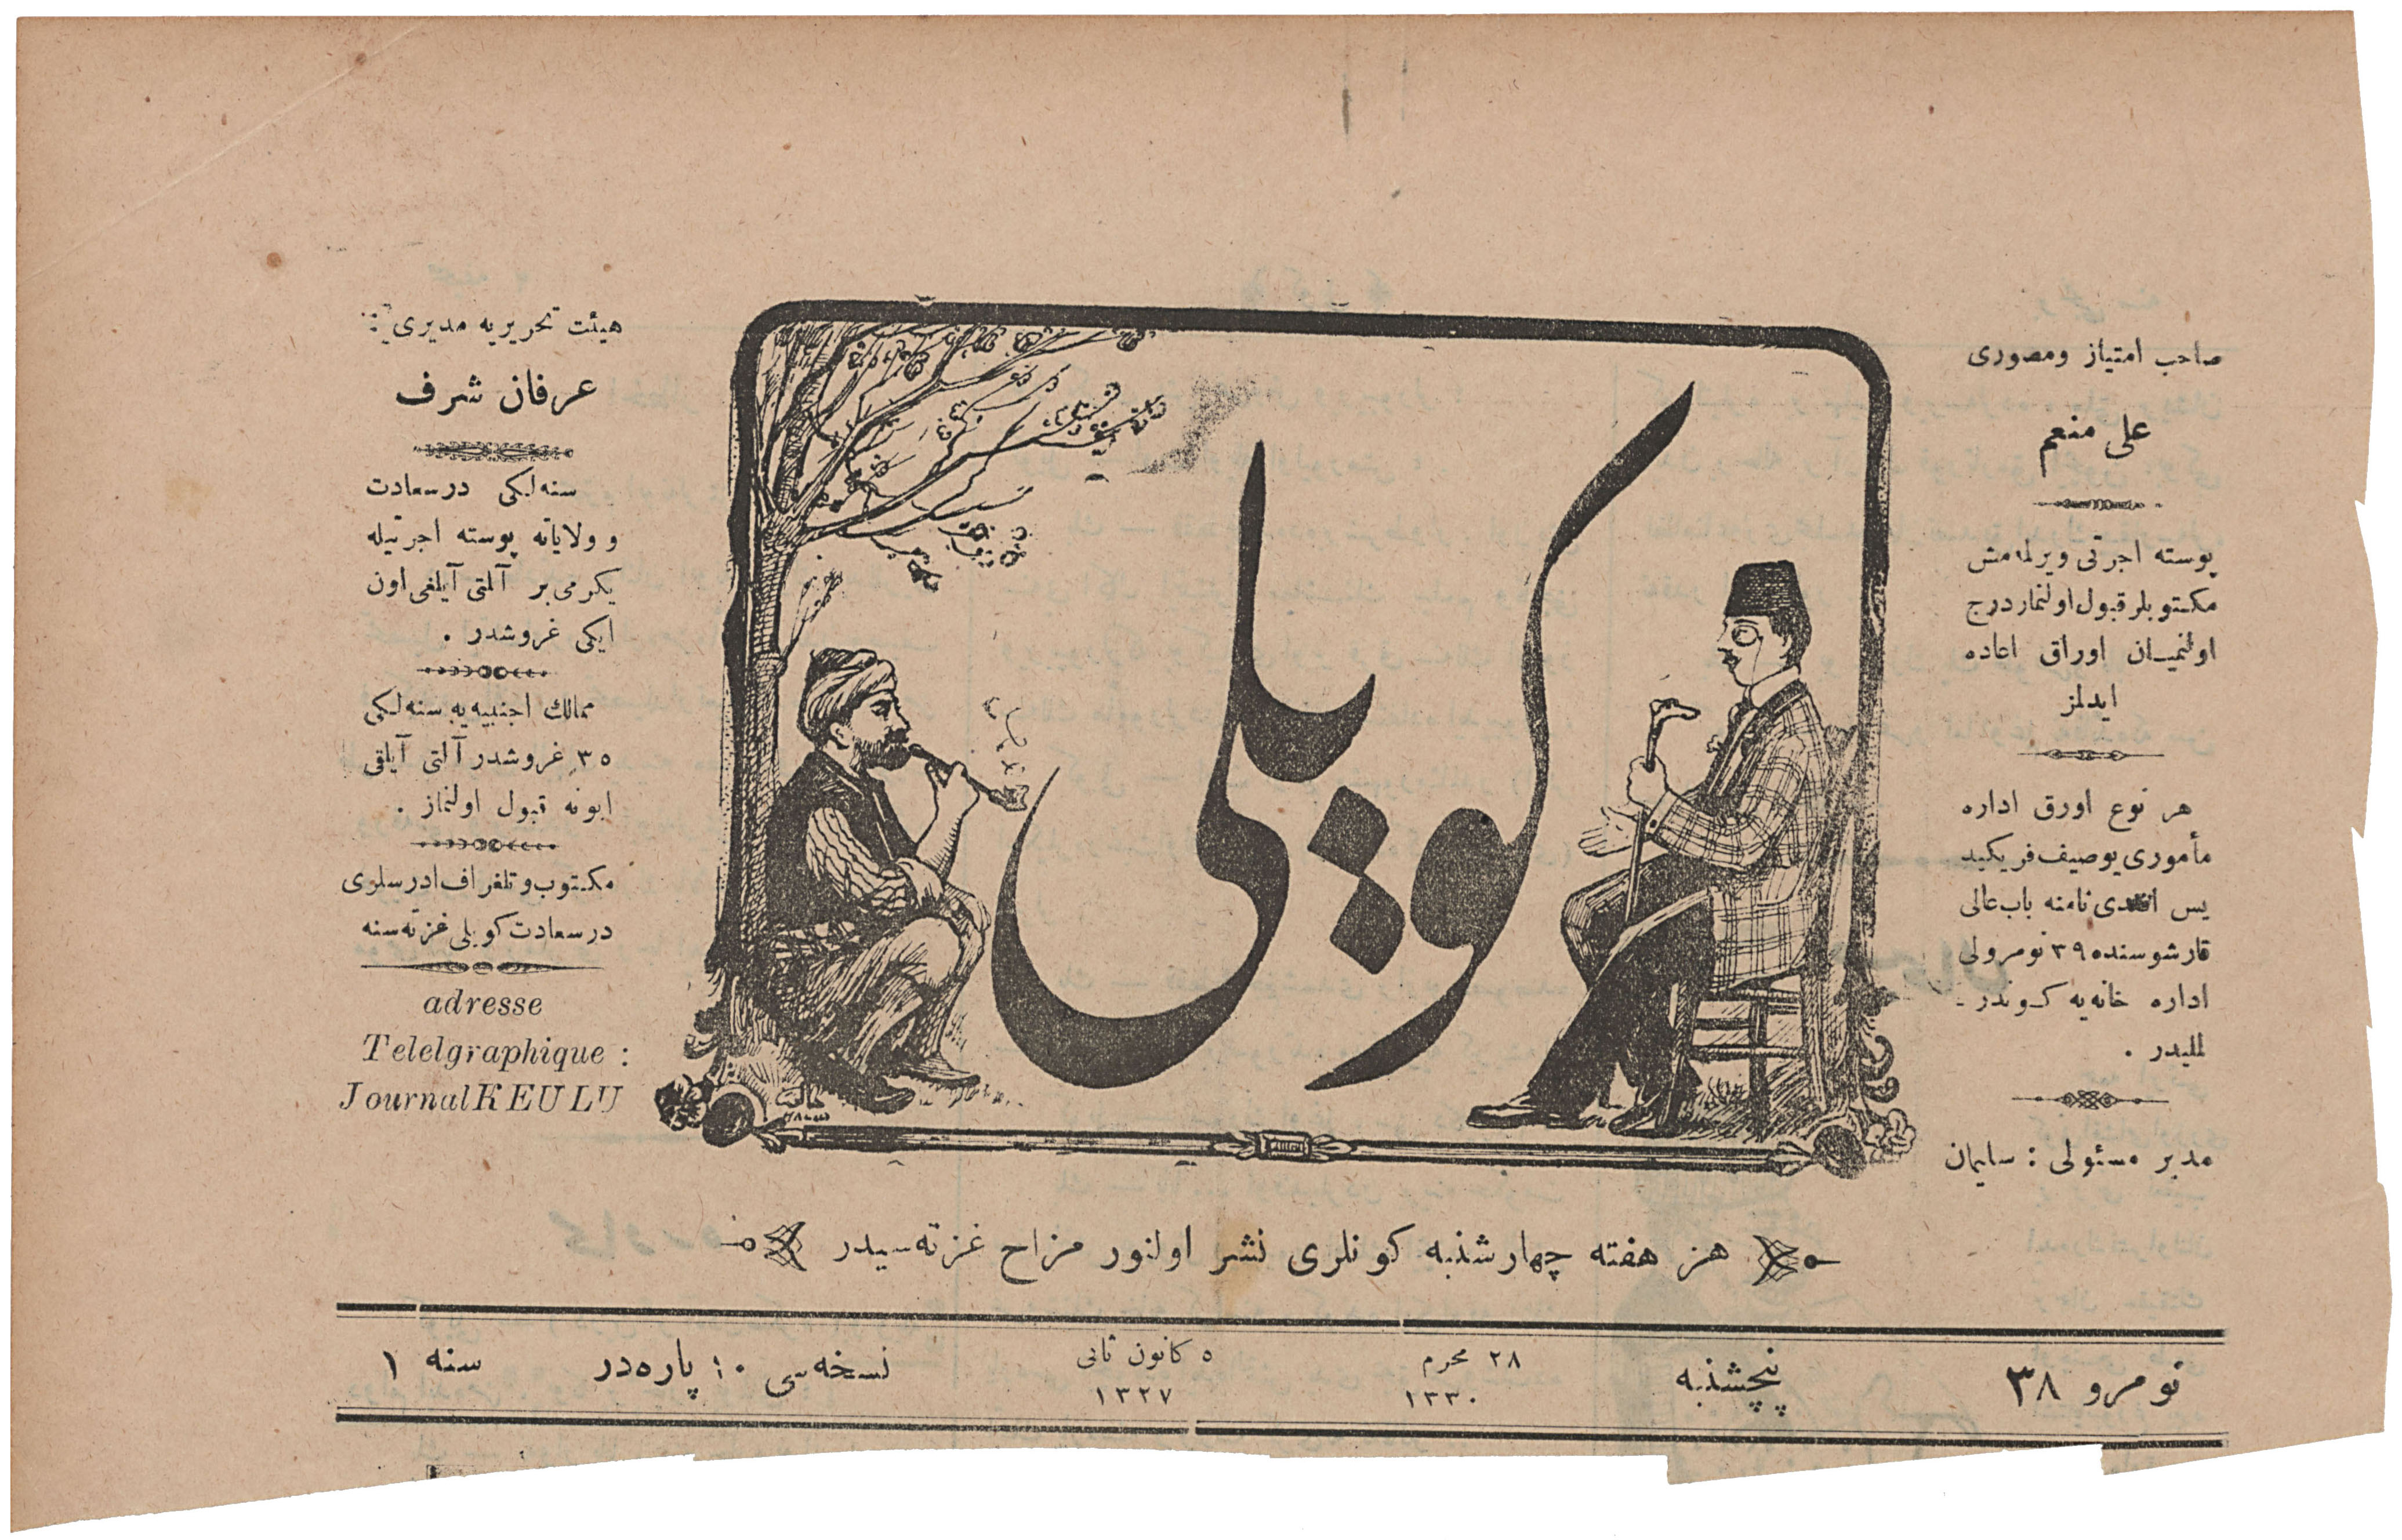 صاحب امتياز ومصوری
علی منعم
پوسته اجرتی ويرلمه‌مش
مكتوبلر قبول اولنماز درج
اولنميان اوراق اعاده
ايدلمز
هر نوع اورق اداره
مأموری يوصيف فريكيد
يس افندی نامنه باب عالی
قارشوسنده ٣٩ نومرولی
اداره خانه‌يه كوندر -
لمليدر .
مدير مسئولی : سليمان
كويلی
هيئت تحريريه مديری :
عرفان شرف
سنه‌لكی درسعادت
و ولاياته پوسته اجرتيله
يكرمی بر آلتی آيلغی اون
ايكی غروشدر .
ممالك اجنبيه‌يه سنه‌لكی
٣٥ غروشدر آلتی آيلقی
ابونه قبول اولنماز .
مكتوب و تلغراف ادرسلری
درسعادت كويلی غزته‌سنه
adresse
Telelgraphique :
Journal KEULU
هر هفته چهارشنبه كونلری نشر اولنور مزاح غزته‌سيدر
نومرو ٣٨
پنچشنبه
٢٨ محرم
١٣٣٠
٥ كانون ثانی
١٣٢٧
نسخه‌سی ١٠ پاره‌در
سنه ١